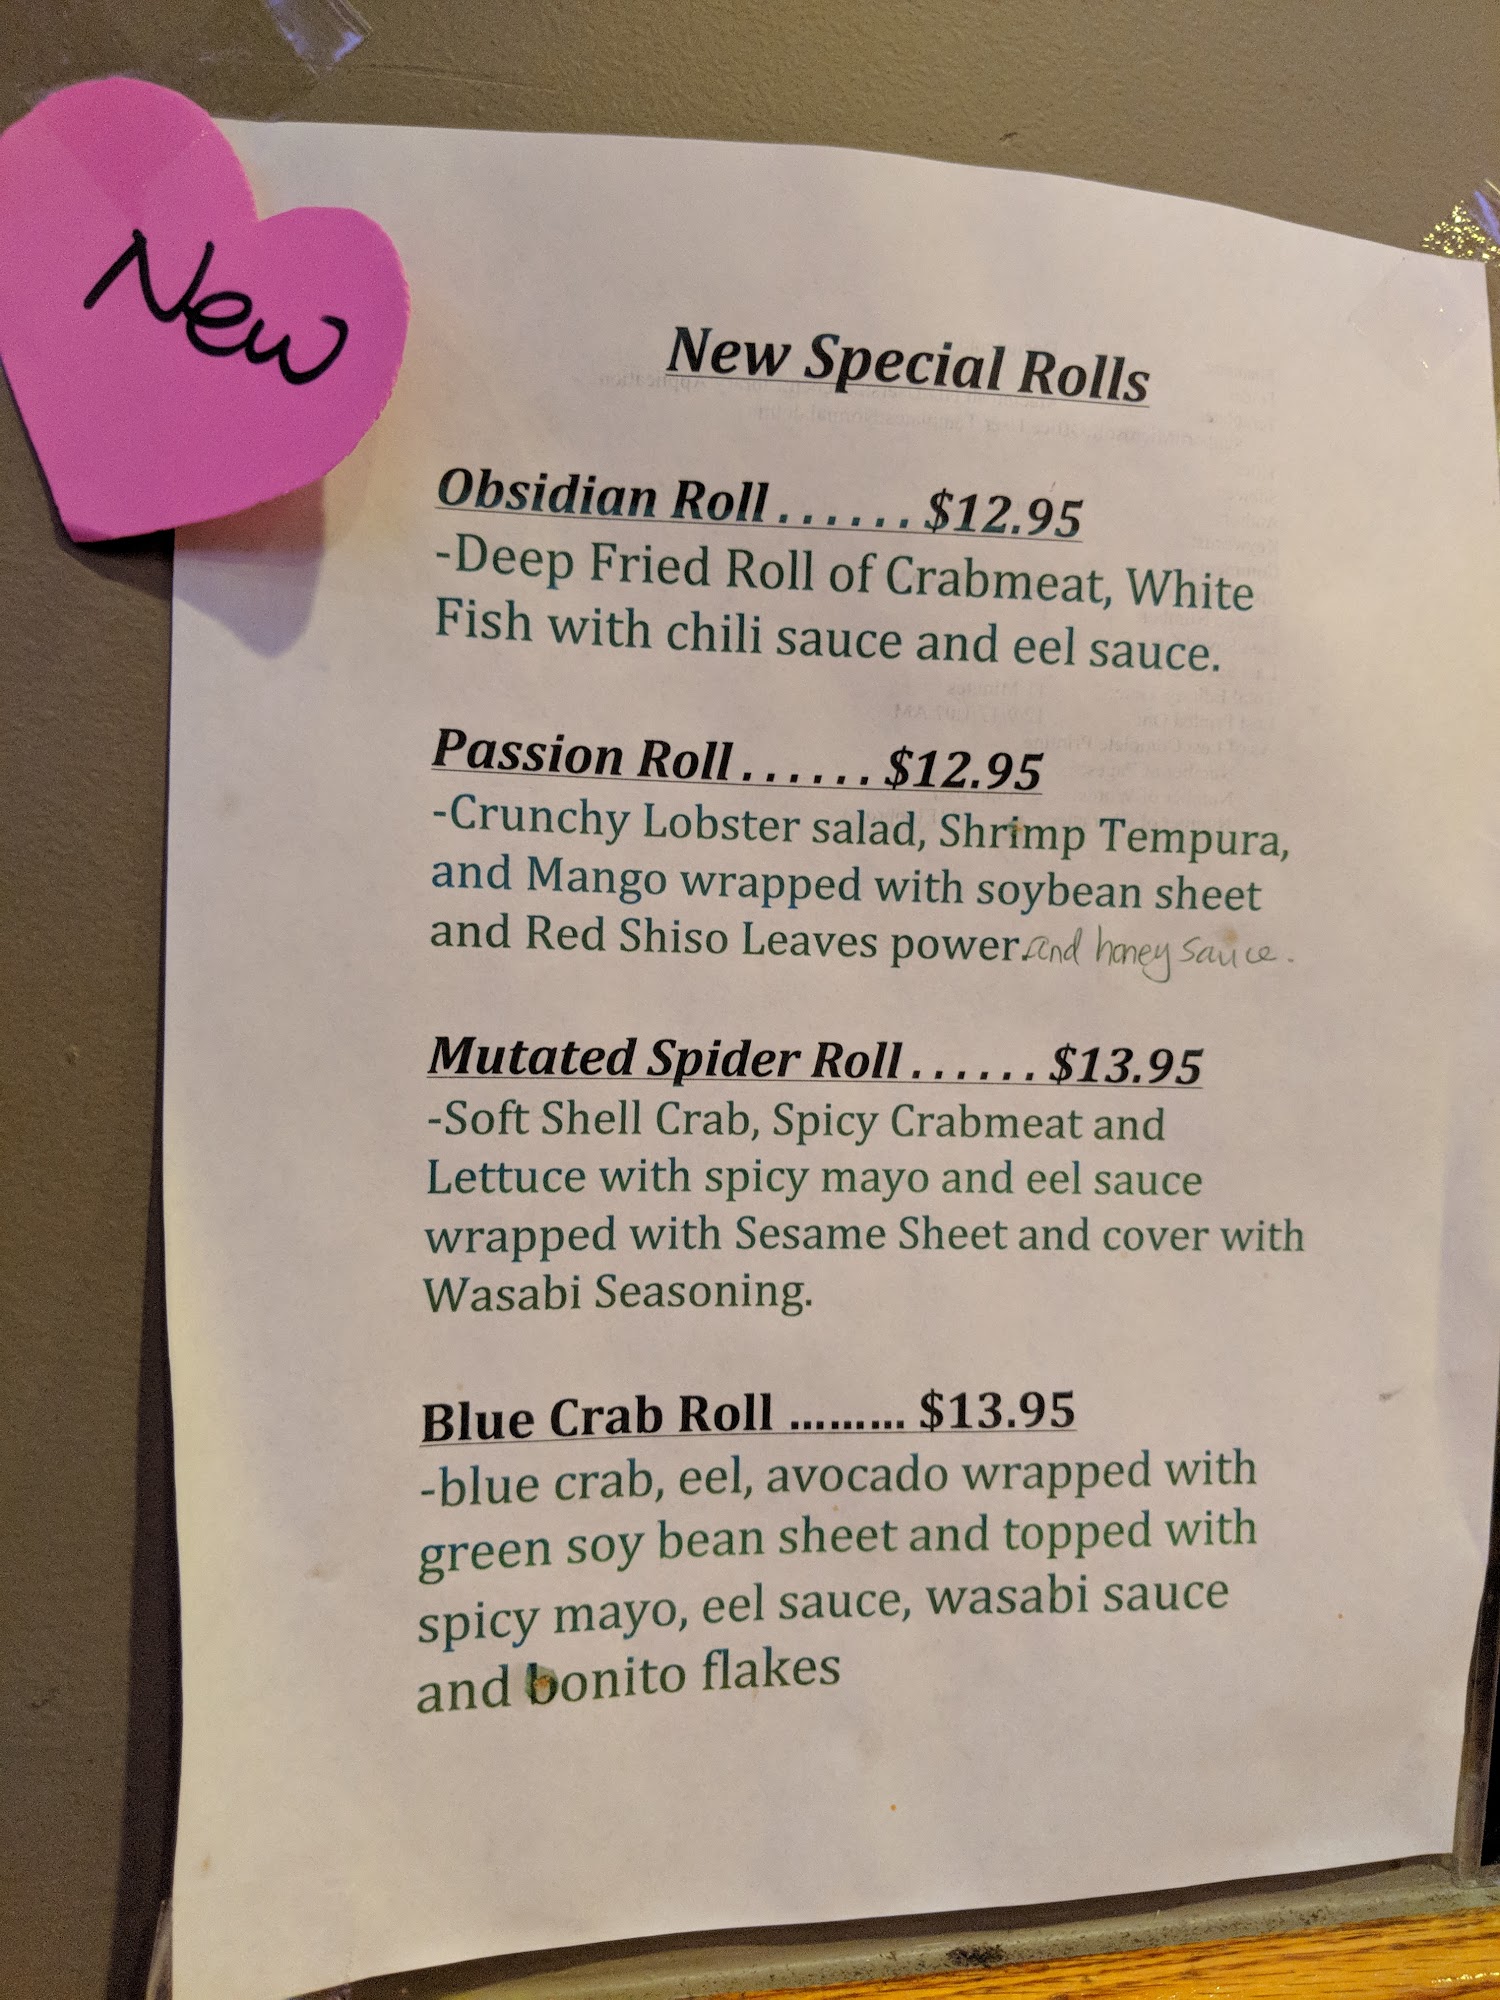 New
New Special Rolls
Obsidian Roll . . . . . . $12.95
-Deep Fried Roll of Crabmeat, White
Fish with chili sauce and eel sauce.
Passion Roll . . . . . . $12.95
-Crunchy Lobster salad, Shrimp Tempura,
and Mango wrapped with soybean sheet
and Red Shiso Leaves power. and honey sauce.
Mutated Spider Roll . . . . . . $13.95
-Soft Shell Crab, Spicy Crabmeat and
Lettuce with spicy mayo and eel sauce
wrapped with Sesame Sheet and cover with
Wasabi Seasoning.
Blue Crab Roll ......... $13.95
-blue crab, eel, avocado wrapped with
green soy bean sheet and topped with
spicy mayo, eel sauce, wasabi sauce
and bonito flakes